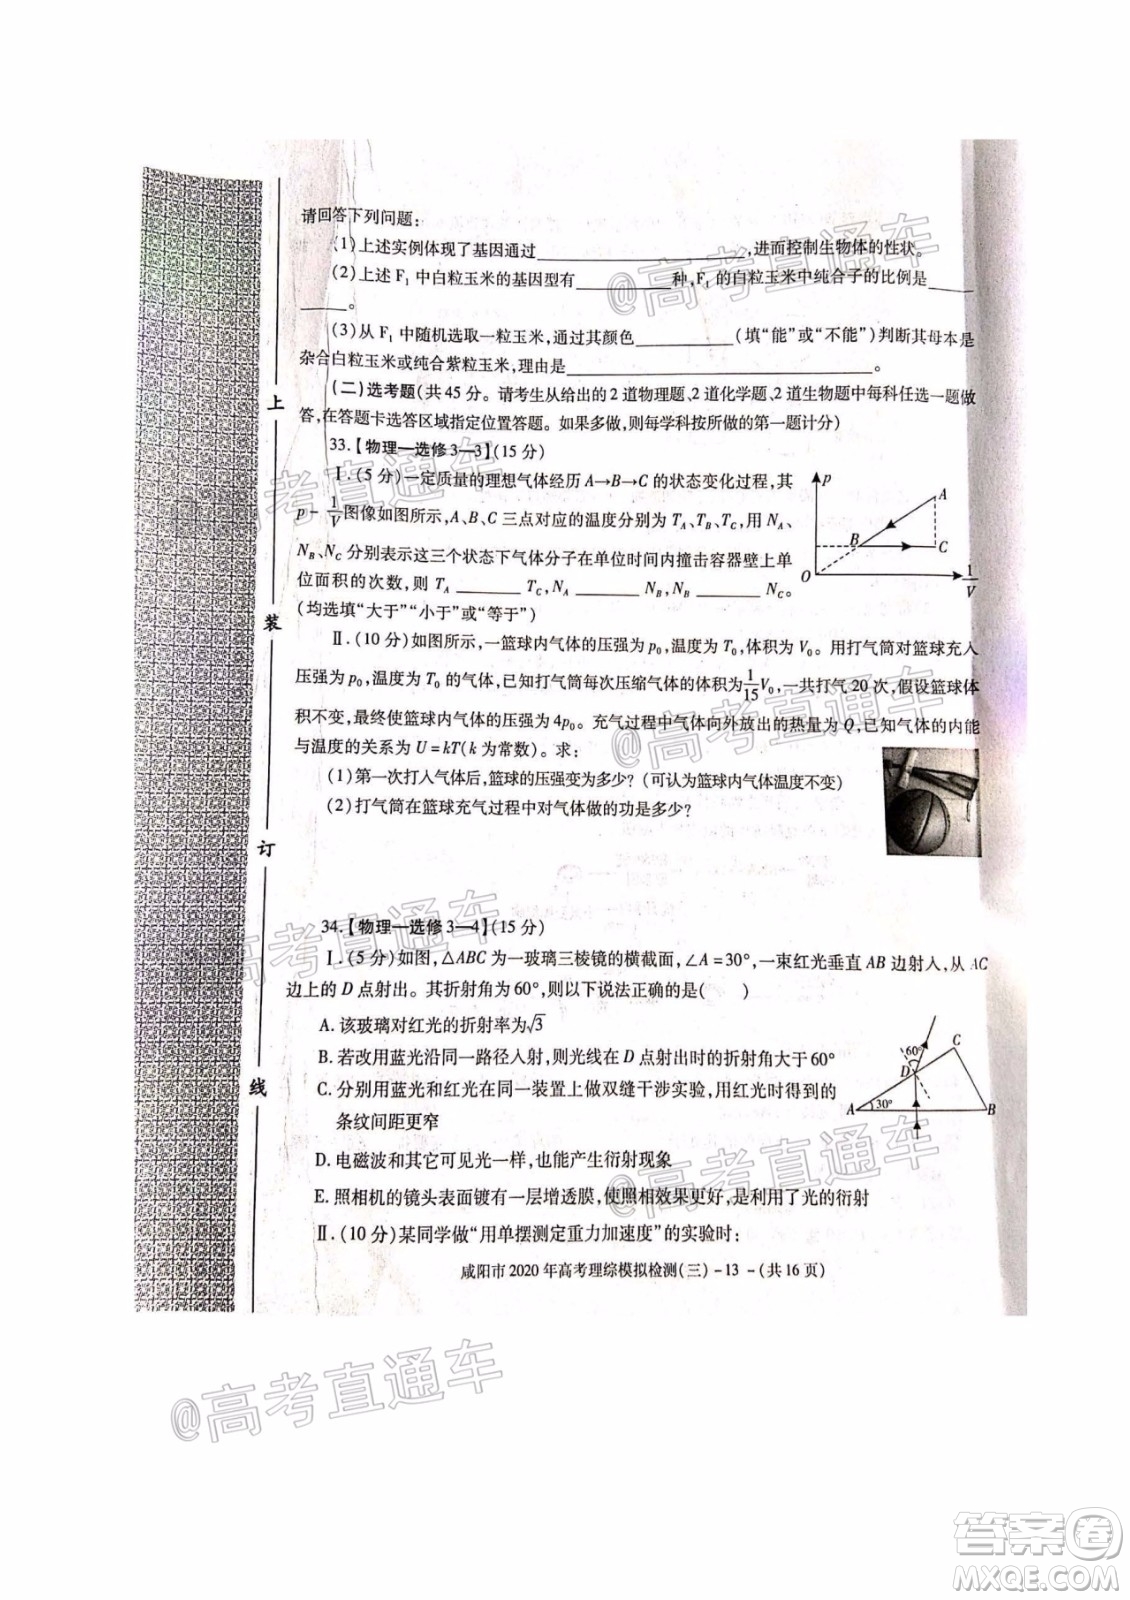 请回答下列问题：
(1)上述实例体现了基因通过________，进而控制生物体的性状。
(2)上述 F₁ 中白粒玉米的基因型有________种，F₁ 的白粒玉米中纯合子的比例是____
____。
(3)从 F₁ 中随机选取一粒玉米，通过其颜色________(填“能”或“不能”)判断其母本是
杂合白粒玉米或纯合紫粒玉米，理由是________________。
(二)选考题(共 45 分。请考生从给出的 2 道物理题、2 道化学题、2 道生物题中每科任选一题做
答，在答题卡选答区域指定位置答题。如果多做，则每学科按所做的第一题计分)
33.【物理—选修 3—3】(15 分)
Ⅰ.(5 分)一定质量的理想气体经历 A→B→C 的状态变化过程，其
p－1/V图像如图所示，A、B、C 三点对应的温度分别为 T_A、T_B、T_C，用 N_A、
N_B、N_C 分别表示这三个状态下气体分子在单位时间内撞击容器壁上单
位面积的次数，则 T_A ______ T_C，N_A ______ N_B，N_B ______ N_C。
(均选填“大于”“小于”或“等于”)
p
A
B
C
O
1/V
Ⅱ.(10 分)如图所示，一篮球内气体的压强为 p₀，温度为 T₀，体积为 V₀。用打气筒对篮球充入
压强为 p₀，温度为 T₀ 的气体，已知打气筒每次压缩气体的体积为1/15 V₀，一共打气 20 次，假设篮球体
积不变，最终使篮球内气体的压强为 4p₀。充气过程中气体向外放出的热量为 Q，已知气体的内能
与温度的关系为 U＝kT(k 为常数)。求：
(1)第一次打入气体后，篮球的压强变为多少？(可认为篮球内气体温度不变)
(2)打气筒在篮球充气过程中对气体做的功是多少？
34.【物理—选修 3—4】(15 分)
Ⅰ.(5 分)如图，△ABC 为一玻璃三棱镜的横截面，∠A＝30°，一束红光垂直 AB 边射入，从 AC
边上的 D 点射出。其折射角为 60°，则以下说法正确的是(　　)
A. 该玻璃对红光的折射率为√3
B. 若改用蓝光沿同一路径入射，则光线在 D 点射出时的折射角大于 60°
C. 分别用蓝光和红光在同一装置上做双缝干涉实验，用红光时得到的
条纹间距更窄
D. 电磁波和其它可见光一样，也能产生衍射现象
E. 照相机的镜头表面镀有一层增透膜，使照相效果更好，是利用了光的衍射
60°
C
D
A
30°
B
Ⅱ.(10 分)某同学做“用单摆测定重力加速度”的实验时：
咸阳市 2020 年高考理综模拟检测(三)－13－(共 16 页)
上
装
订
线
@高考直通车
高考直通车
@高考直通车
高考直通车
@高考直通车
@高考直通车
答案卷
MXQE.COM